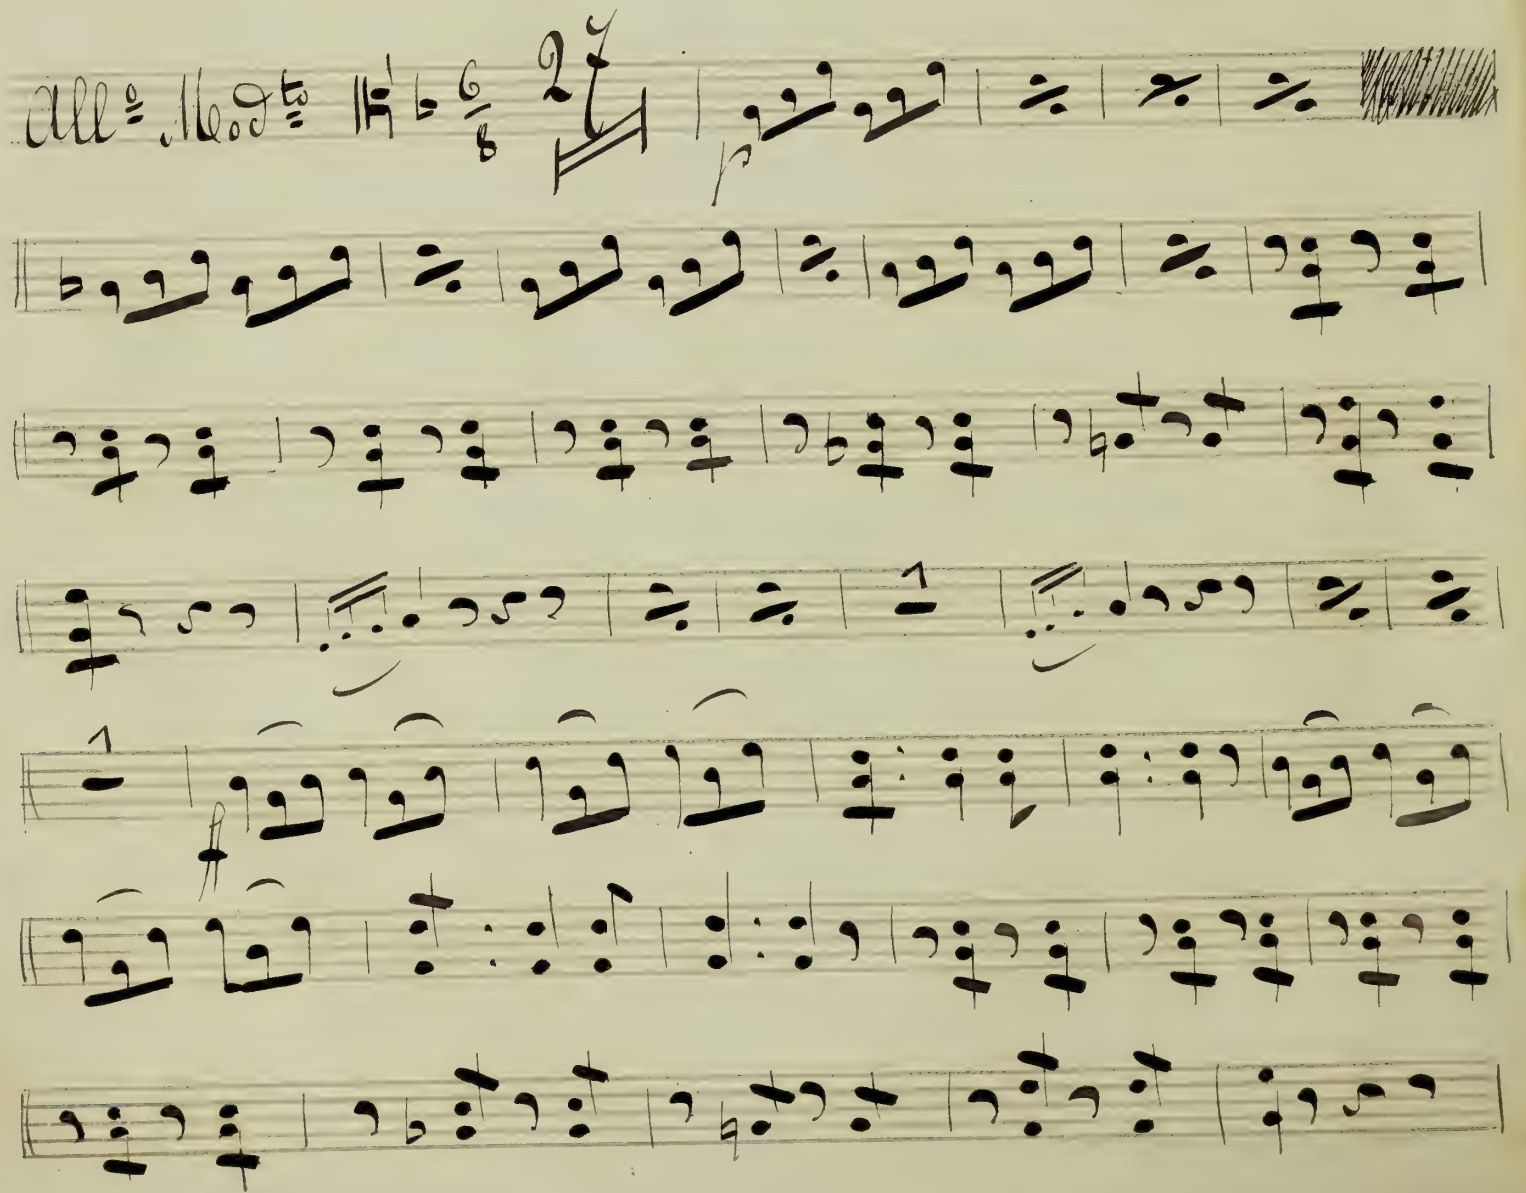 All.º Mod.to 6/8 27
p
1 1
1
ff